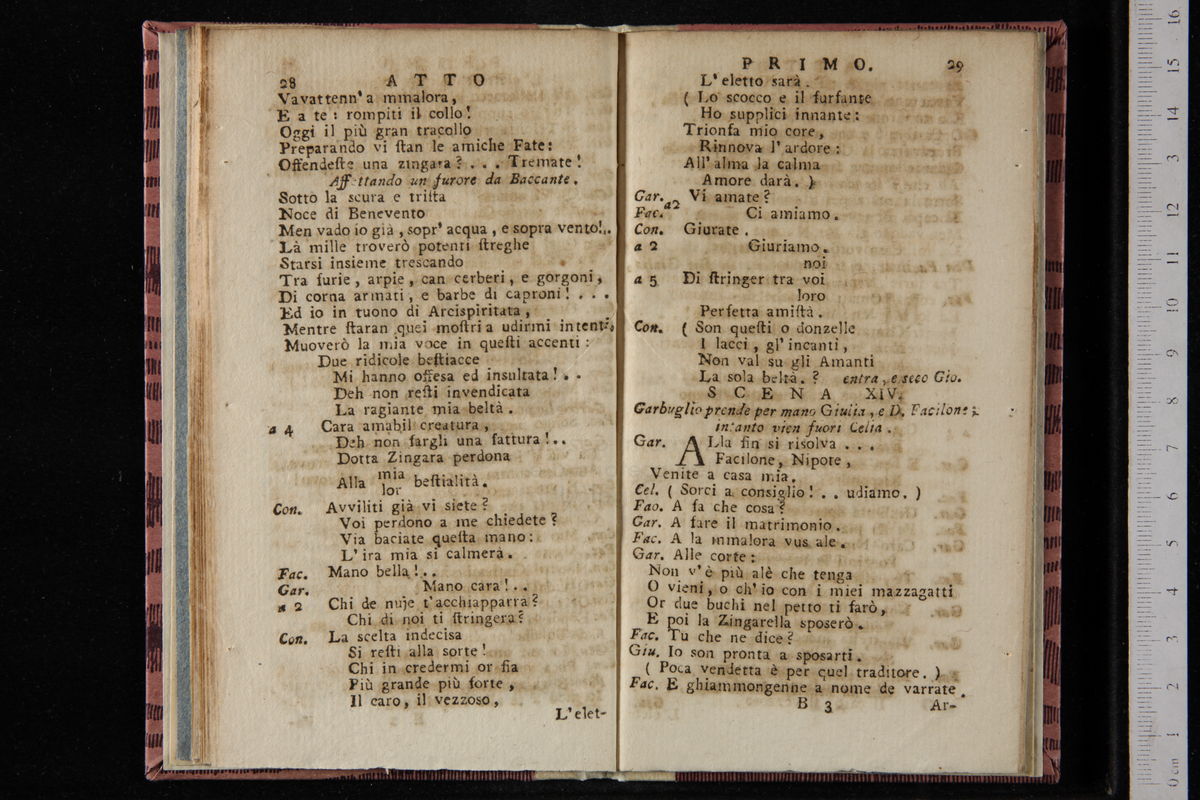 28 ATTO
Vavattenn' a mmalora,
E a te: rompiti il collo!
Oggi il più gran tracollo
Preparando vi ſtan le amiche Fate:
Offendeſte una zingara? . . . Tremate!
Affettando un furore da Baccante.
Sotto la scura e triſta
Noce di Benevento
Men vado io già, sopr' acqua, e sopra vento!..
Là mille troverò potenti ſtreghe
Starsi insieme trescando
Tra furie, arpie, can cerberi, e gorgoni,
Di corna armati, e barbe di caproni! . . .
Ed io in tuono di Arcispiritata,
Mentre ſtaran quei moſtri a udirmi intenti,
Muoverò la mia voce in queſti accenti:
Due ridicole beſtiacce
Mi hanno offesa ed insultata! . .
Deh non reſti invendicata
La ragiante mia beltà.
a 4 Cara amabil creatura,
Deh non fargli una fattura!..
Dotta Zingara perdona
Alla mia beſtialità.
lor
Con. Avviliti già vi siete?
Voi perdono a me chiedete?
Via baciate queſta mano:
L' ira mia si calmerà.
Fac. Mano bella!..
Gar. Mano cara!..
a 2 Chi de nuje t' acchiapparrà?
Chi di noi ti ſtringerà?
Con. La scelta indecisa
Si reſti alla sorte!
Chi in credermi or ſia
Più grande più forte,
Il caro, il vezzoso,
L' elet-
PRIMO. 29
L' eletto sarà.
( Lo scocco e il furfante
Ho supplici innante:
Trionfa mio core,
Rinnova l' ardore:
All' alma la calma
Amore darà. )
Gar. Vi amate?
a2
Fac. Ci amiamo.
Con. Giurate.
a 2 Giuriamo.
noi
a 5 Di ſtringer tra voi
loro
Perfetta amiſtà.
Con. ( Son queſti o donzelle
I lacci, gl' incanti,
Non val su gli Amanti
La sola beltà. ? entra, e seco Gio.
SCENA XIV.
Garbuglio prende per mano Giulia, e D. Facilone;
intanto vien fuori Celia.
Gar. ALla fin si risolva . . .
Facilone, Nipote,
Venite a casa mia.
Cel. ( Sorci a consiglio! . . udiamo. )
Fao. A fa che cosa?
Gar. A fare il matrimonio.
Fac. A la mmalora vus ale.
Gar. Alle corte:
Non v' è più alè che tenga
O vieni, o ch' io con i miei mazzagatti
Or due buchi nel petto ti farò,
E poi la Zingarella sposerò.
Fac. Tu che ne dice?
Giu. Io son pronta a sposarti.
( Poca vendetta è per quel traditore. )
Fac. E ghiammongenne a nome de varrate.
B 3 Ar-
0 cm 1 2 3 4 5 6 7 8 9 10 11 12 13 14 15 16